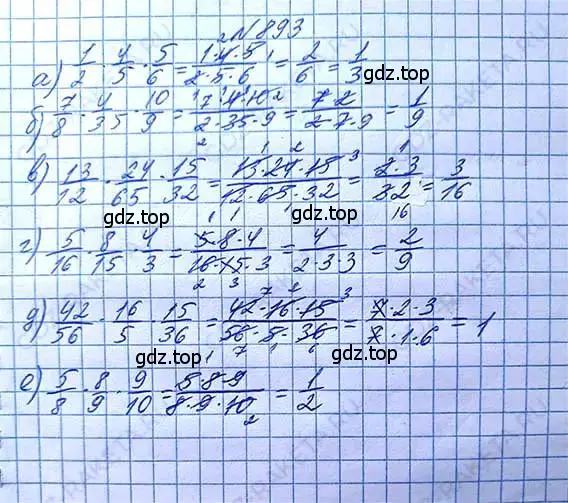 №893
а) 1/2 · 4/5 · 5/6 = 1·4·5/2·5·6 = 2/6 = 1/3
gdz.top
б) 7/8 · 4/35 · 10/9 = 7·4·10/2·35·9 = 7·2/2·7·9 = 1/9
gdz.top
в) 13/12 · 24/65 · 15/32 = 13·24·15/12·65·32 = 2·3/32 = 3/16
gdz.top
gdz.top
г) 5/16 · 8/15 · 4/3 = 5·8·4/16·15·3 = 4/2·3·3 = 2/9
gdz.top
gdz.top
д) 42/56 · 16/5 · 15/36 = 42·16·15/56·5·36 = 7·2·3/7·1·6 = 1
gdz.top
е) 5/8 · 8/9 · 9/10 = 5·8·9/8·9·10 = 1/2
gdz.top